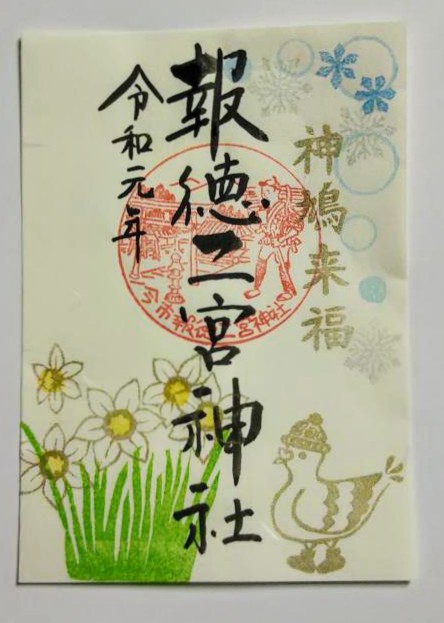 神鳩来福
報徳二宮神社
令和元年
今市報徳二宮神社